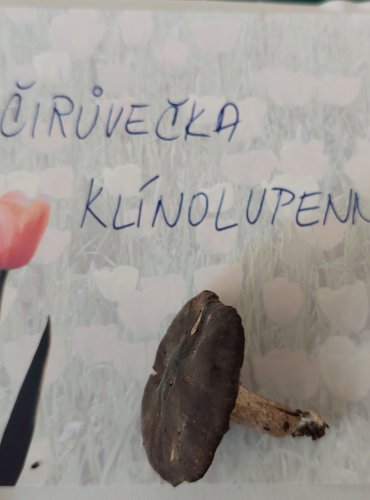 ČIRŮVEČKA
KLÍNOLUPENN